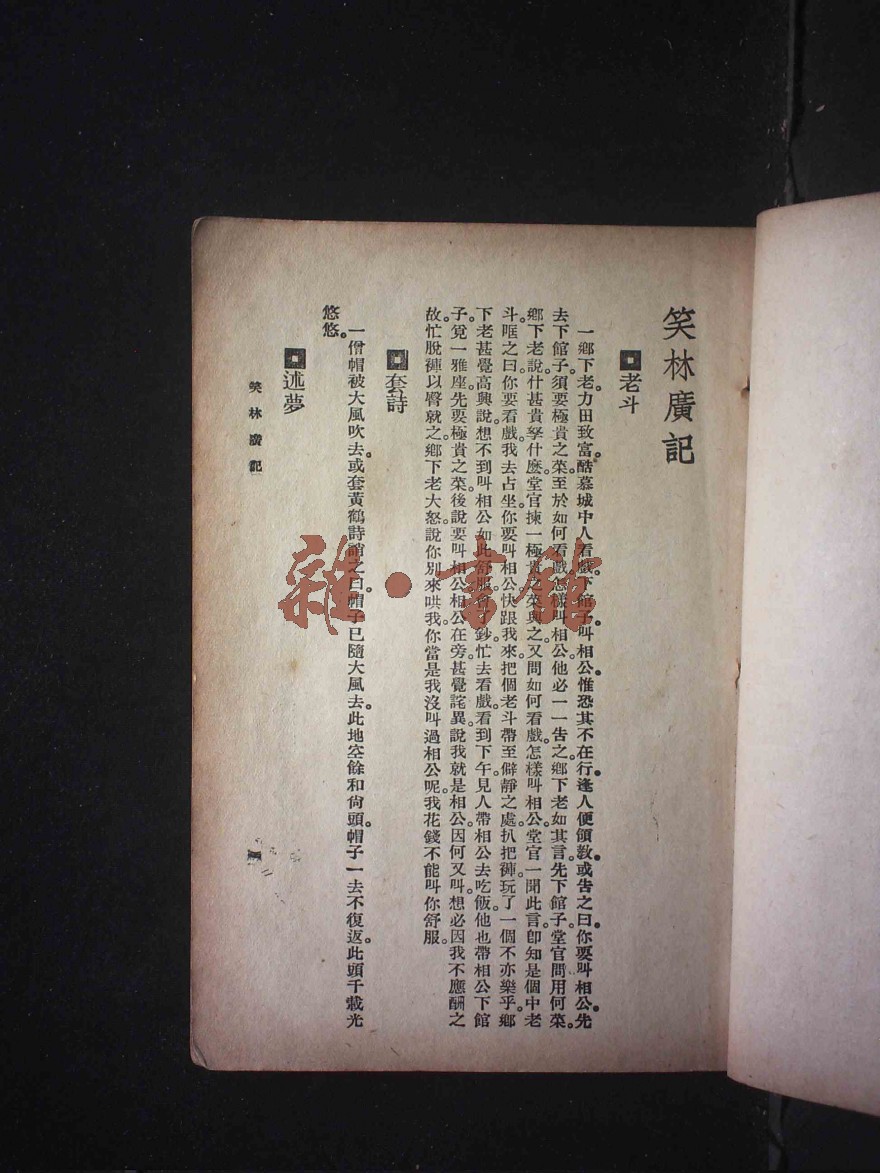 笑林廣記
老斗
一鄉下老力田致富。酷慕城中人看戲。下館子。叫相公。惟恐其不在行。逢人便領教。或告之曰。你要叫相公。先
去下館子。須要極貴之菜。至於如何看戲。怎樣叫相公。他必一一告之。鄉下老如其言。先下館子。堂官問用何菜。
鄉下老說。什甚貴拏什麽。堂官揀一極貴之菜與之。又問如何看戲。怎樣叫相公。堂官一聞此言。卽知是個中老
斗。哐之曰。你要看戲。我去占坐。你要叫相公。快跟我來。把個老斗帶至僻靜之處。扒把褲玩了一個不亦樂乎。鄉
下老甚覺高興。說。想不到叫相公如此舒服。會了鈔。忙去看戲。看到下午。見人帶相公去吃飯。他也帶相公下館
子。覓一雅座。先要極貴之菜。後說要叫相公。相公在旁。甚覺詫異。說我就是相公。因何又叫。想必因我不應酬之
故。忙脫褲以臀就之。鄉下老大怒說。你別來哄我。你當是我沒叫過相公呢。我花錢不能叫你舒服。
套詩
一僧帽被大風吹去。或套黃鶴詩誚之曰。帽子已隨大風去。此地空餘和尙頭。帽子一去不復返。此頭千載光
悠悠。
述夢
笑林廣記
一
雜·書館